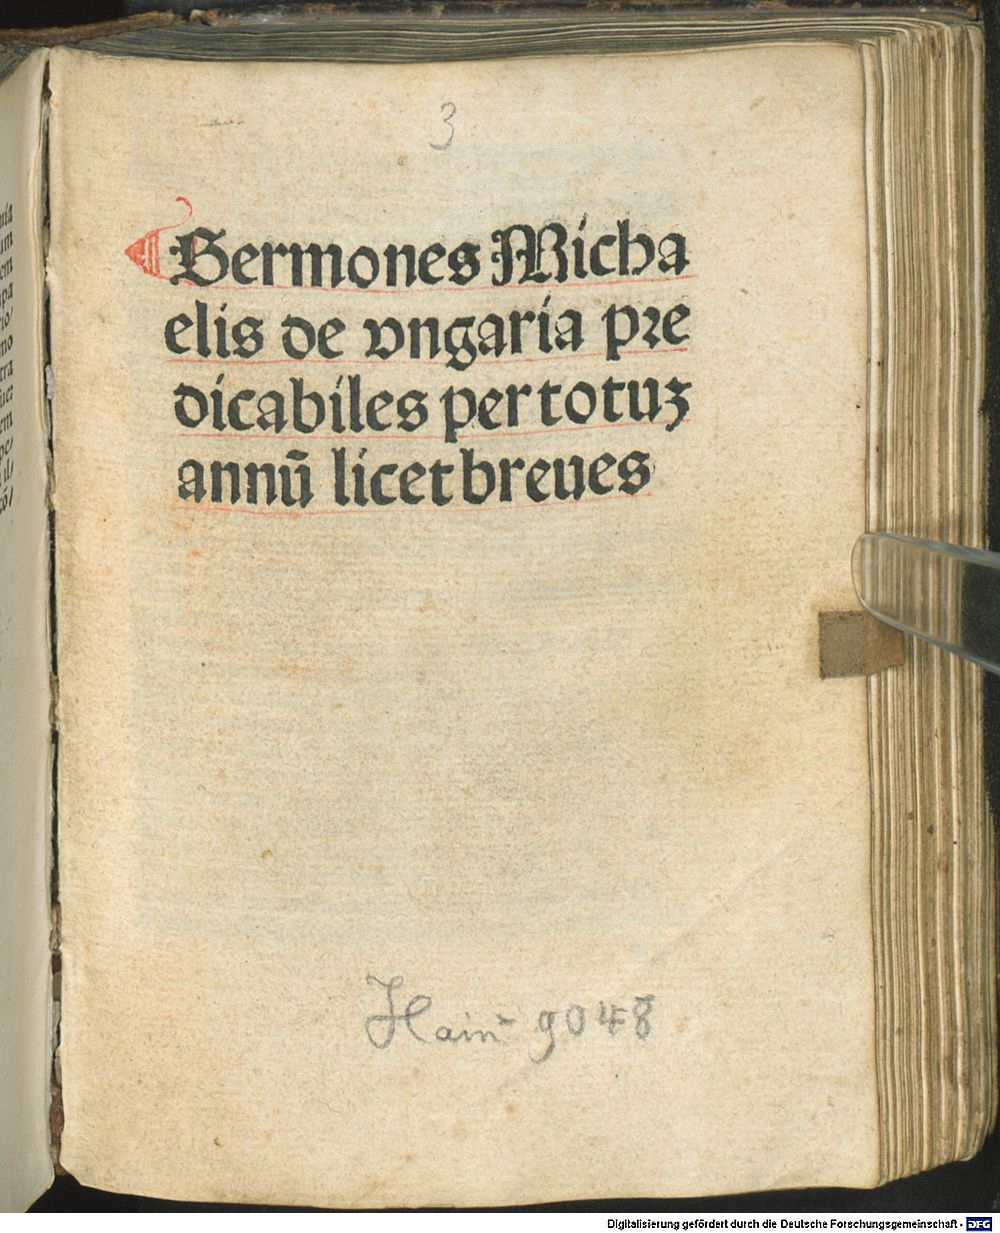 3
Sermones Micha
elis de vngaria pre
dicabiles per totuꝫ
annū licet breues
Hain 9048
Digitalisierung gefördert durch die Deutsche Forschungsgemeinschaft - DFG